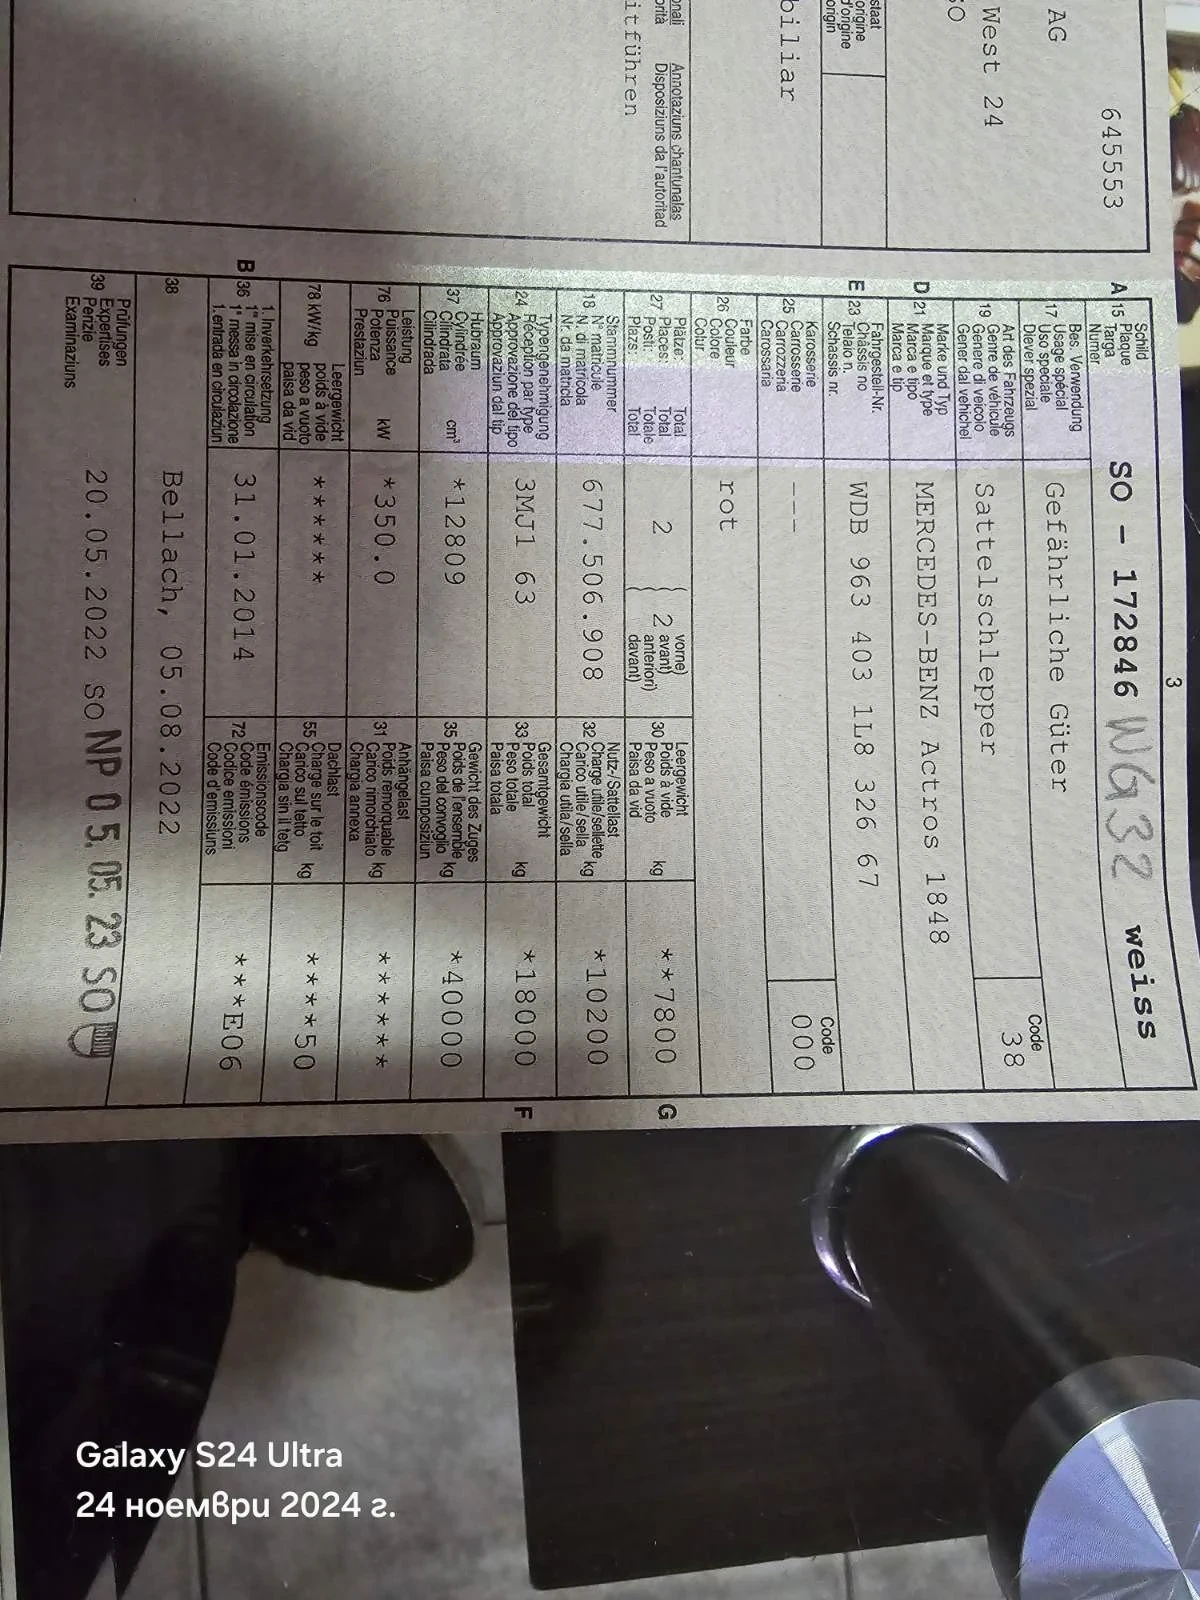 645553
AG
West 24
SO
staat
origine
d'origine
origin
biliar
onali Annotaziuns chantunalas
orità Disposiziuns da l'autoritad
itführen
3
A 15 Schild
Plaque
Targa
Numer
SO - 172846 WG32 weiss
17 Bes. Verwendung
Usage spécial
Uso speciale
Diever spezial
Gefährliche Güter
19 Art des Fahrzeugs
Genre de véhicule
Genere di veicolo
Gener dal vehichel
Sattelschlepper
Code
38
D 21 Marke und Typ
Marque et type
Marca e tipo
Marca e tip
MERCEDES-BENZ Actros 1848
E 23 Fahrgestell-Nr.
Châssis no
Telaio n.
Schassis nr.
WDB 963 403 1L8 326 67
25 Karosserie
Carrosserie
Carrozzeria
Carossaria
---
Code
000
26 Farbe
Couleur
Colore
Colur
rot
27 Plätze: Total
Places: Total
Posti: Totale
Plazs: Total
2
2
vorne)
avant)
anteriori)
davant)
30 Leergewicht
Poids à vide
Peso a vuoto
Paisa da vid
kg
**7800
G
18 Stammnummer
N° matricule
N. di matricola
Nr. da matricla
677.506.908
32 Nutz-/Sattellast
Charge utile/sellette
Carico utile/sella
Chargia utila/sella
kg
*10200
24 Typengenehmigung
Réception par type
Approvazione del tipo
Approvaziun dal tip
3MJ1 63
33 Gesamtgewicht
Poids total
Peso totale
Paisa totala
kg
*18000
F
37 Hubraum
Cylindrée
Cilindrata
Cilindrada
cm³
*12809
35 Gewicht des Zuges
Poids de l'ensemble
Peso del convoglio
Paisa cumposiziun
kg
*40000
76 Leistung
Puissance
Potenza
Prestaziun
kW
*350.0
31 Anhängelast
Poids remorquable
Carico rimorchiato
Chargia annexa
kg
******
78 kW/kg
Leergewicht
poids à vide
peso a vuoto
paisa da vid
*****
55 Dachlast
Charge sur le toit
Carico sul tetto
Chargia sin il tetg
kg
****50
B 36 1. Inverkehrsetzung
1re mise en circulation
1a messa in circolazione
1. entrada en circulaziun
31.01.2014
72 Emissionscode
Code émissions
Codice emissioni
Code d'emissiuns
***E06
38
Bellach, 05.08.2022
39 Prüfungen
Expertises
Perizie
Examinaziuns
20.05.2022 SO NP 05. 05. 23 SO
Galaxy S24 Ultra
24 ноември 2024 г.